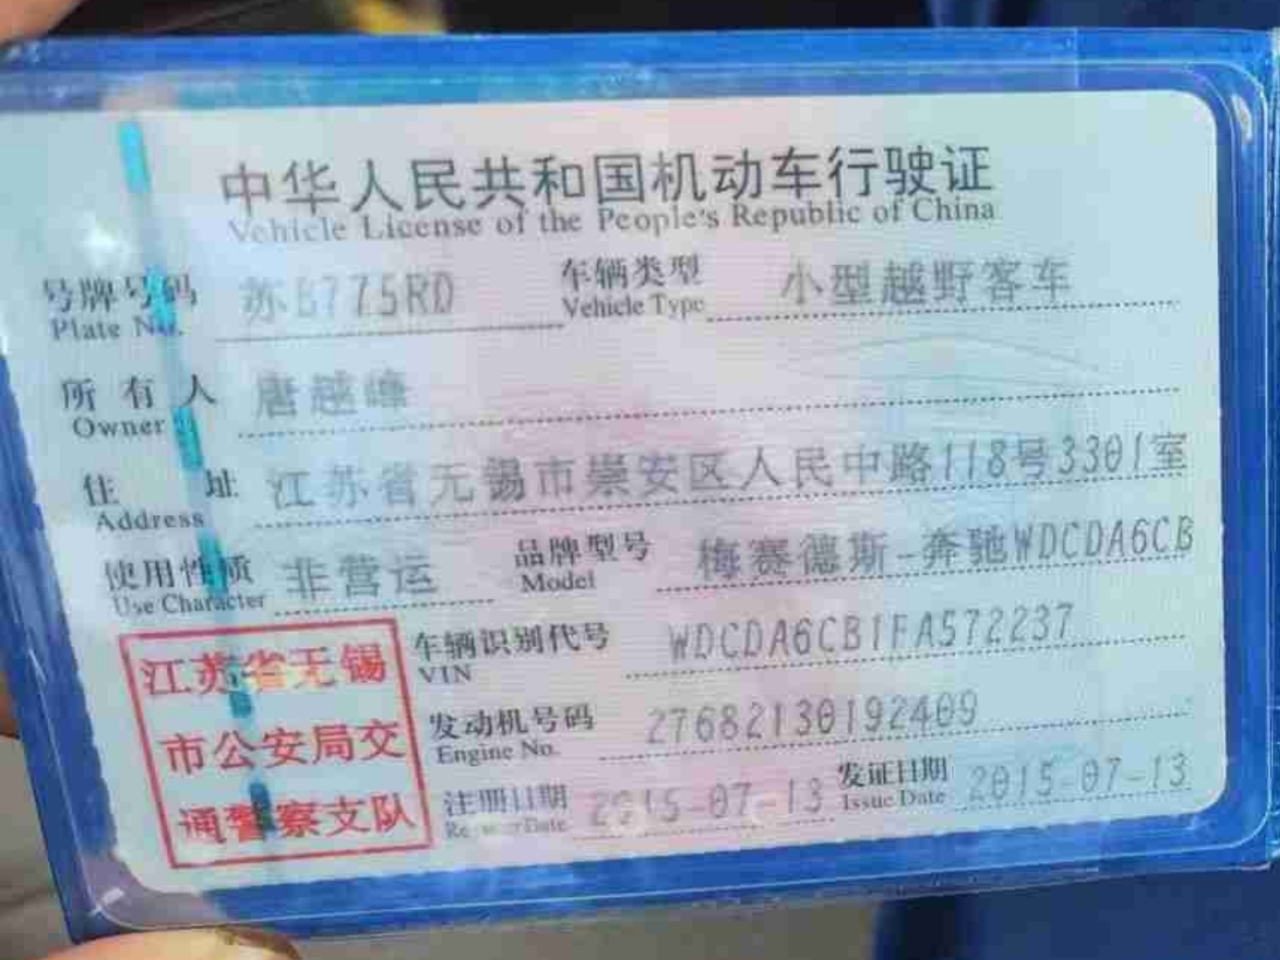 中华人民共和国机动车行驶证
Vehicle License of the People's Republic of China
号牌号码 苏B775RD 车辆类型 小型越野客车
Plate No. Vehicle Type
所有人 唐越峰
Owner
住址 江苏省无锡市崇安区人民中路118号3301室
Address
使用性质 非营运 品牌型号 梅赛德斯-奔驰WDCDA6CB
Use Character Model
江苏省无锡
市公安局交
通警察支队
车辆识别代号 WDCDA6CB1FA572237
VIN
发动机号码 27682130192409
Engine No.
注册日期 2015-07-13 发证日期 2015-07-13
Register Date Issue Date